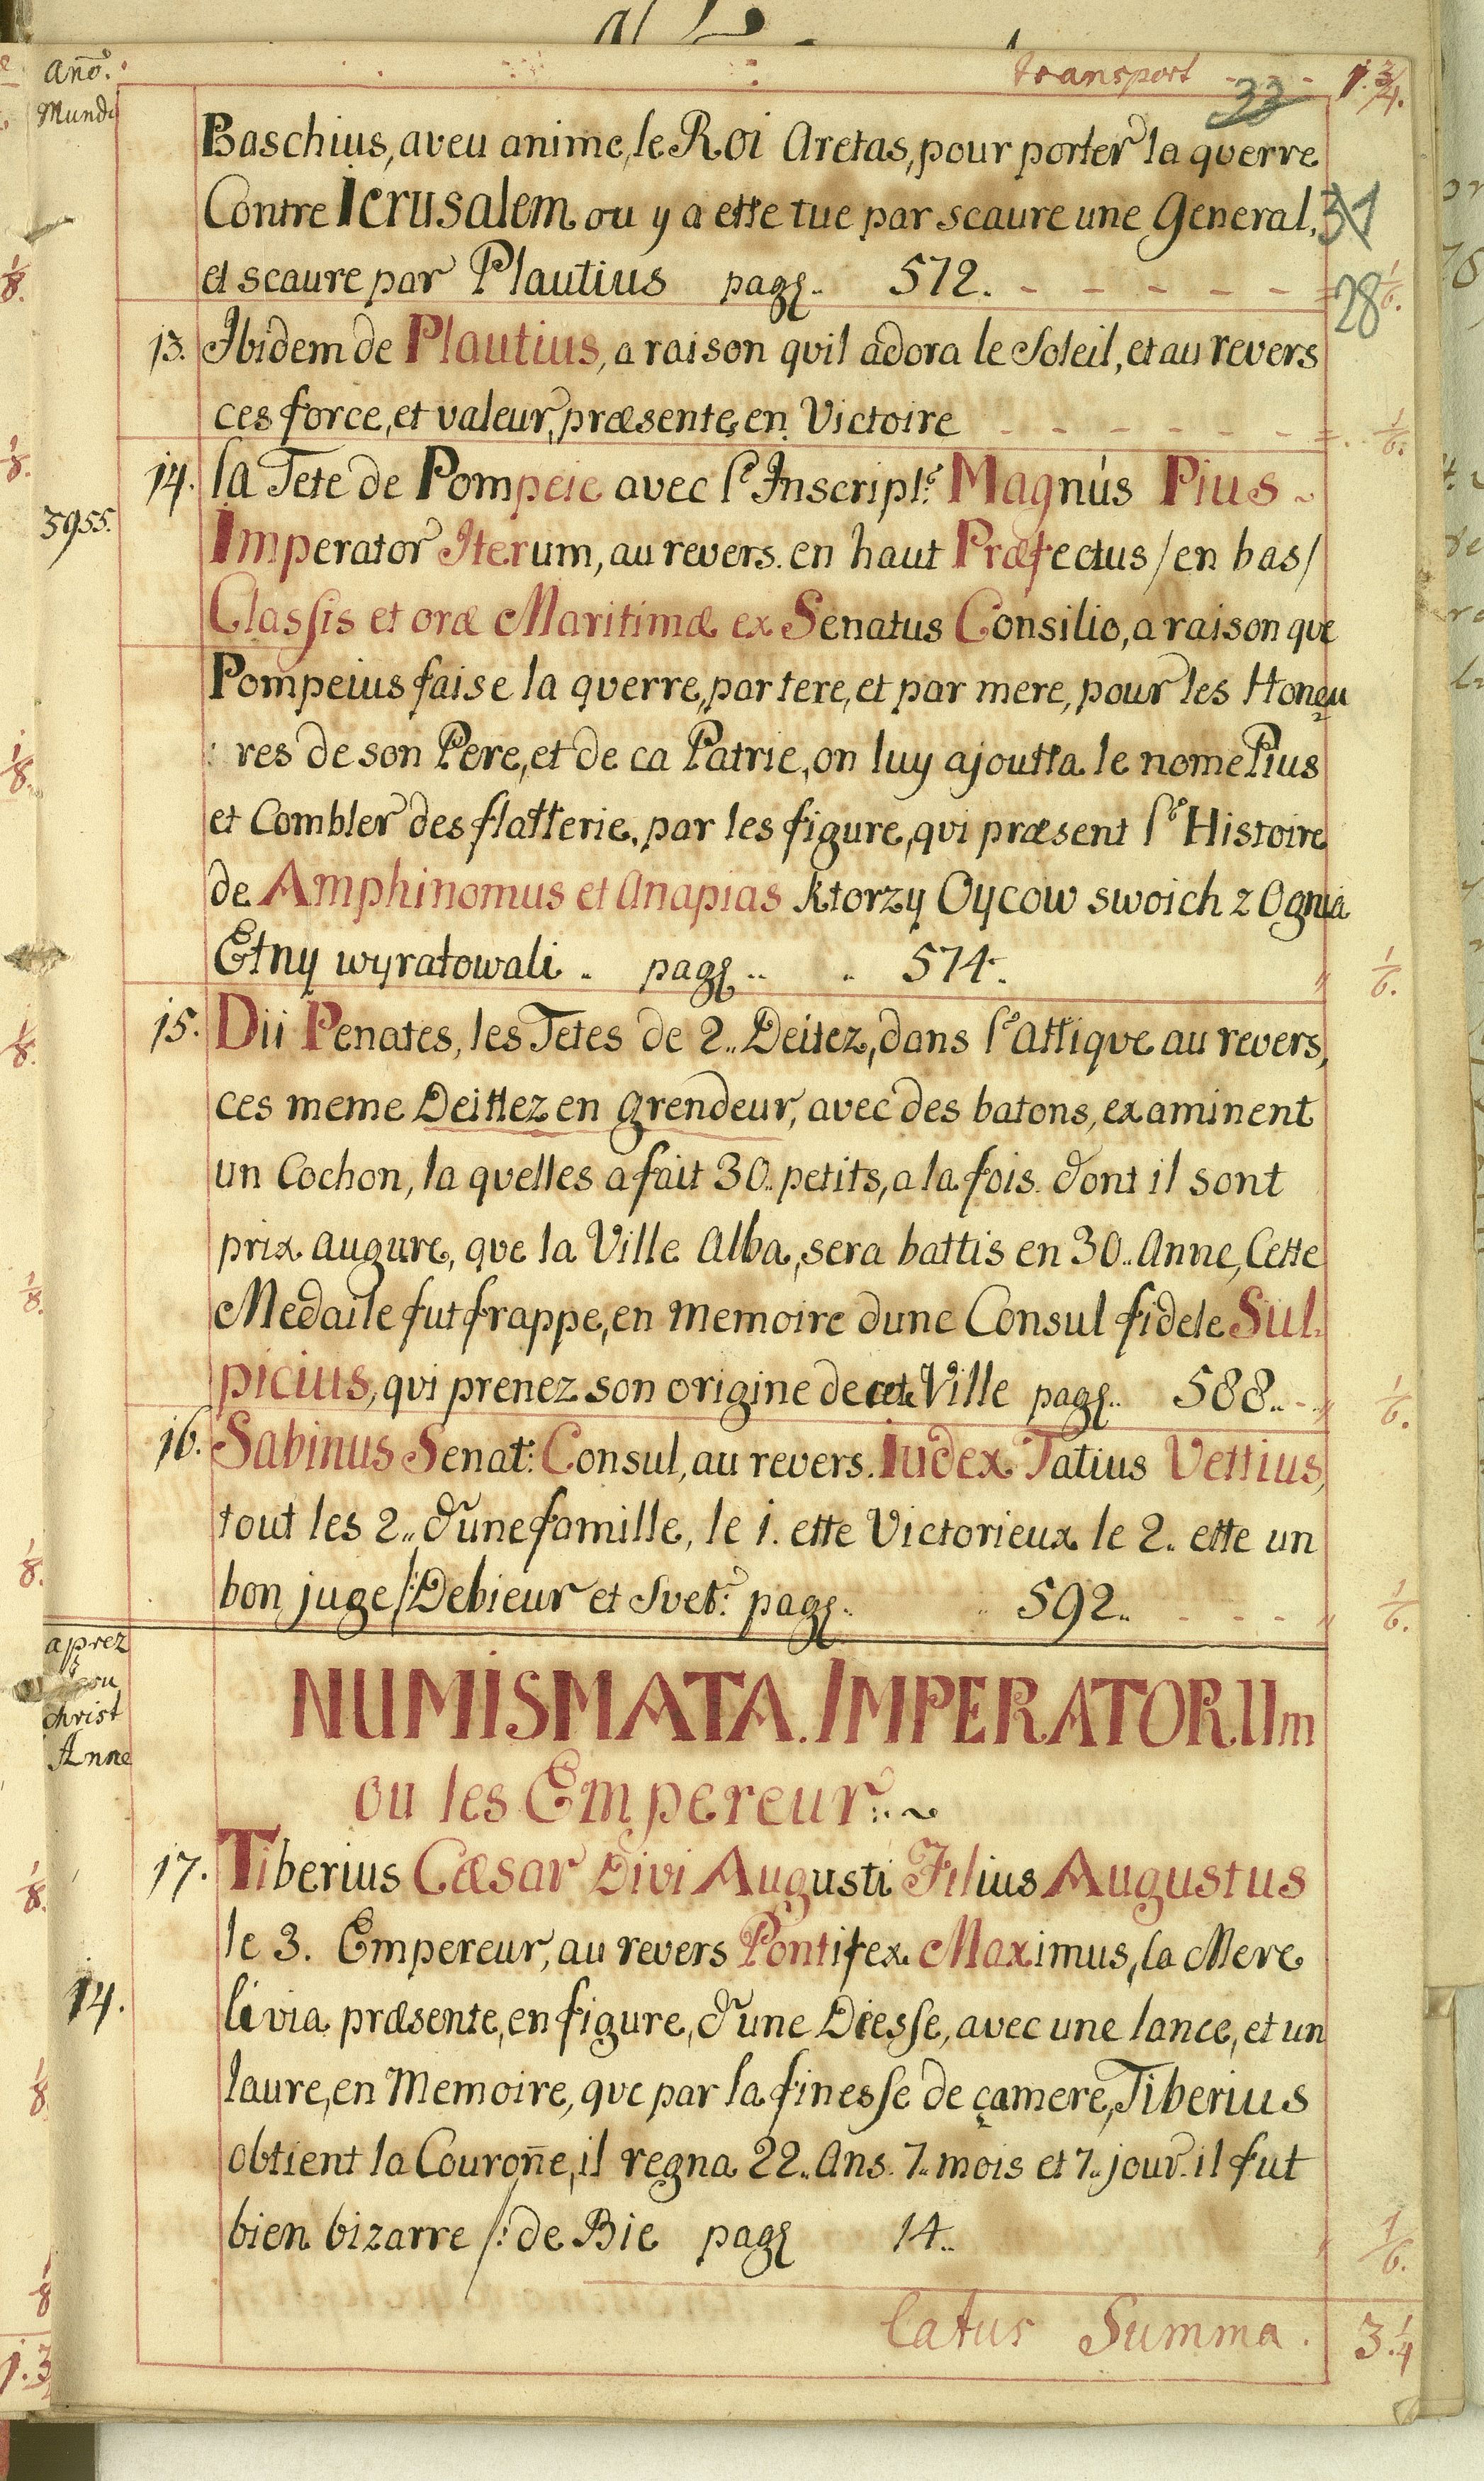 Ano.
Mundi
transport - - - 1.3/4.
33
Baschius, aveu anime, le Roi Aretas, pour porter la querre
Contre Ierusalem ou y a ette tue par scaure une General,
31
et scaure par Plautius pag. 572. - - - - - - 1/6.
28
13. Ibidem de Plautius, a raison quil adora le Soleil, et au revers
ces force, et valeur, præsente, en Victoire - - - - - - - 1/6.
14. la Tete de Pompeie avec l'Inscript: Magnus Pius ~
3955.
Imperator Iterum, au revers. en haut Præfectus / en bas /
Classis et oræ Maritimæ ex Senatus Consilio, a raison que
Pompeius faise la querre, par tere, et par mere, pour les Honeu
: res de son Pere, et de ca Patrie, on luy ajoutta le nome Pius
et Combler des flatterie. par les figure, qui præsent l'Histoire
de Amphinomus et Anapias ktorzy Oycow swoich z Ognia
Etny wyratowali .. pag .. .. 574. 1/6.
15. Dii Penates, les Tetes de 2.. Deitez, dans l'attique au revers,
ces meme Deittez en grendeur, avec des batons, examinent
un Cochon, la quelles a fait 30.. petits, a la fois. dont il sont
prix augure, que la Ville Alba, sera battis en 30.. Anne, Cette
Medaile fut frappe, en Memoire dune Consul fidele Sul-
picius, qui prenez son origine de cete Ville pag.. 588.. 1/6.
16. Sabinus Senat: Consul, au revers. Iudex Tatius Vettius,
tout les 2.. d'une famille, le 1. ette Victorieux le 2. ette un
bon juge /: Debieur et Svet: pag.. 592.. - - - 1/6.
aprez
Christ
Anne
NUMISMATA. IMPERATORUm
ou les Empereur:. ~
17. Tiberius Cæsar Divi Augusti Filius Augustus
le 3. Empereur, au revers Pontifex Maximus, la Mere
14.
livia præsente, en figure, d'une Diesse, avec une lance, et un
laure, en Memoire, que par la finesse de çamere, Tiberius
obtient la Couroñe, il regna 22.. Ans. 7.. mois et 7.. jour. il fut
bien bizarre /: de Bie pag 14.. 1/6.
Latus Summa. 3.1/4